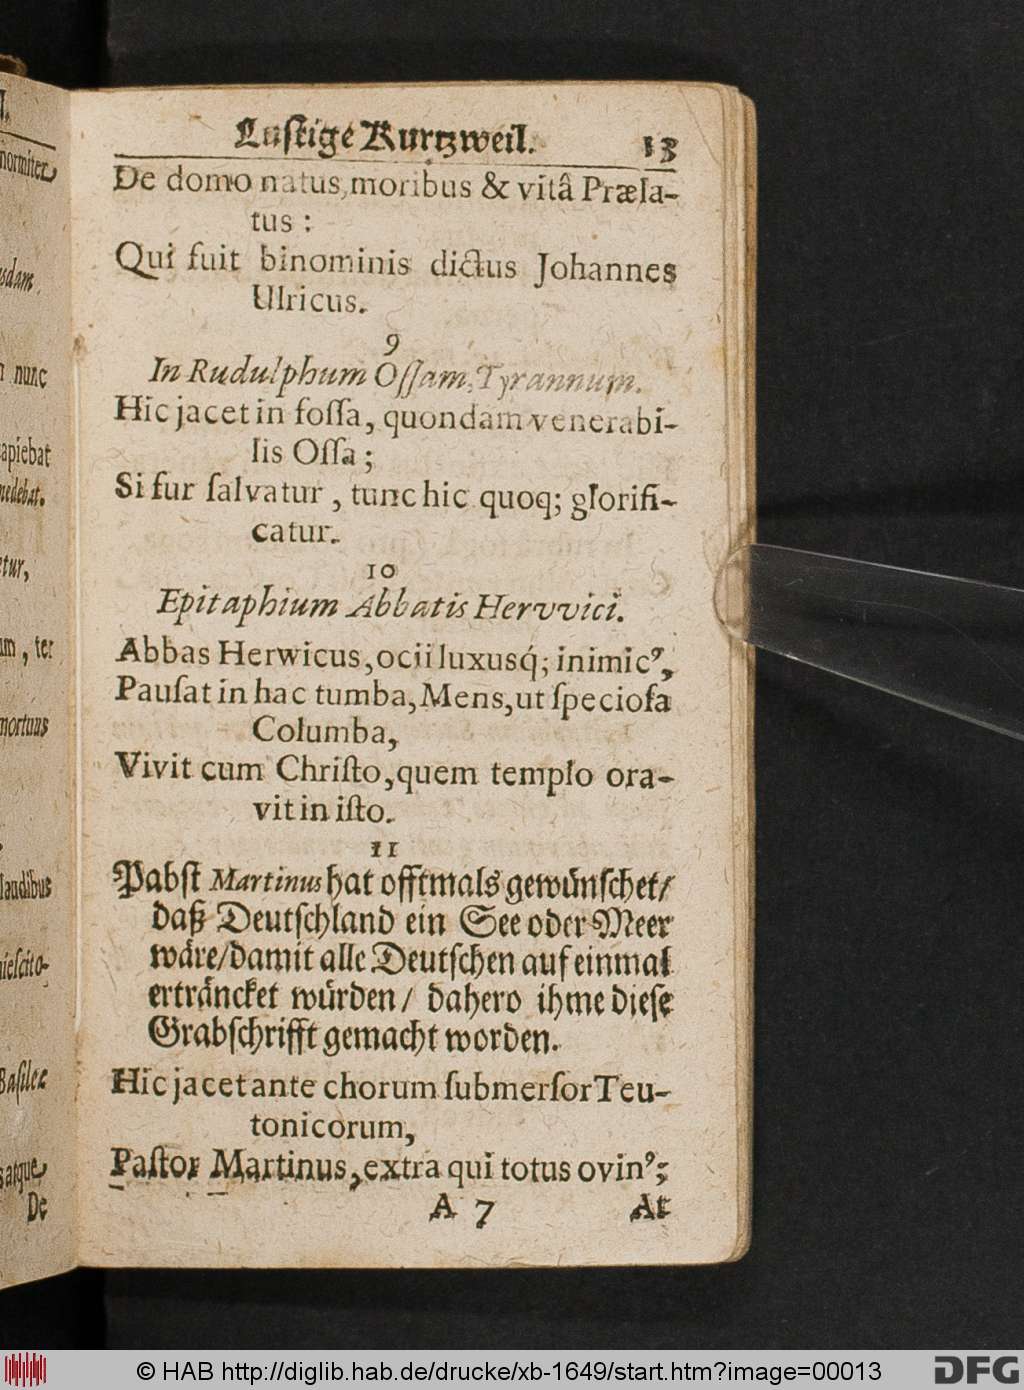 Lustige Kurtzweil. 13
De domo natus, moribus & vitâ Præla-
tus :
Qui fuit binominis dictus Johannes
Ulricus.
9
In Rudulphum Oſſam, Tyrannum.
Hic jacet in foſſa, quondam venerabi-
lis Oſſa ;
Si fur ſalvatur , tunc hic quoq; glorifi-
catur.
10
Epitaphium Abbatis Hervvici.
Abbas Herwicus, ocii luxusq́; inimicꝰ,
Pauſat in hac tumba, Mens, ut ſpecioſa
Columba,
Vivit cum Chriſto, quem templo ora-
vit in iſto.
11
Pabſt Martinus hat offtmals gewuͤnſchet/
daß Deutſchland ein See oder Meer
waͤre/ damit alle Deutſchen auf einmal
ertraͤncket wuͤrden/ dahero ihme dieſe
Grabſchrifft gemacht worden.
Hic jacet ante chorum ſubmerſor Teu-
tonicorum,
Paſtor Martinus, extra qui totus ovinꝰ;
A 7 At
normiter
usdam.
nunc
apiebat
medebat.
etur,
um, ter
mortuus
laudibus
uieſcito-
Baſileæ
satque
De
© HAB http://diglib.hab.de/drucke/xb-1649/start.htm?image=00013
DFG